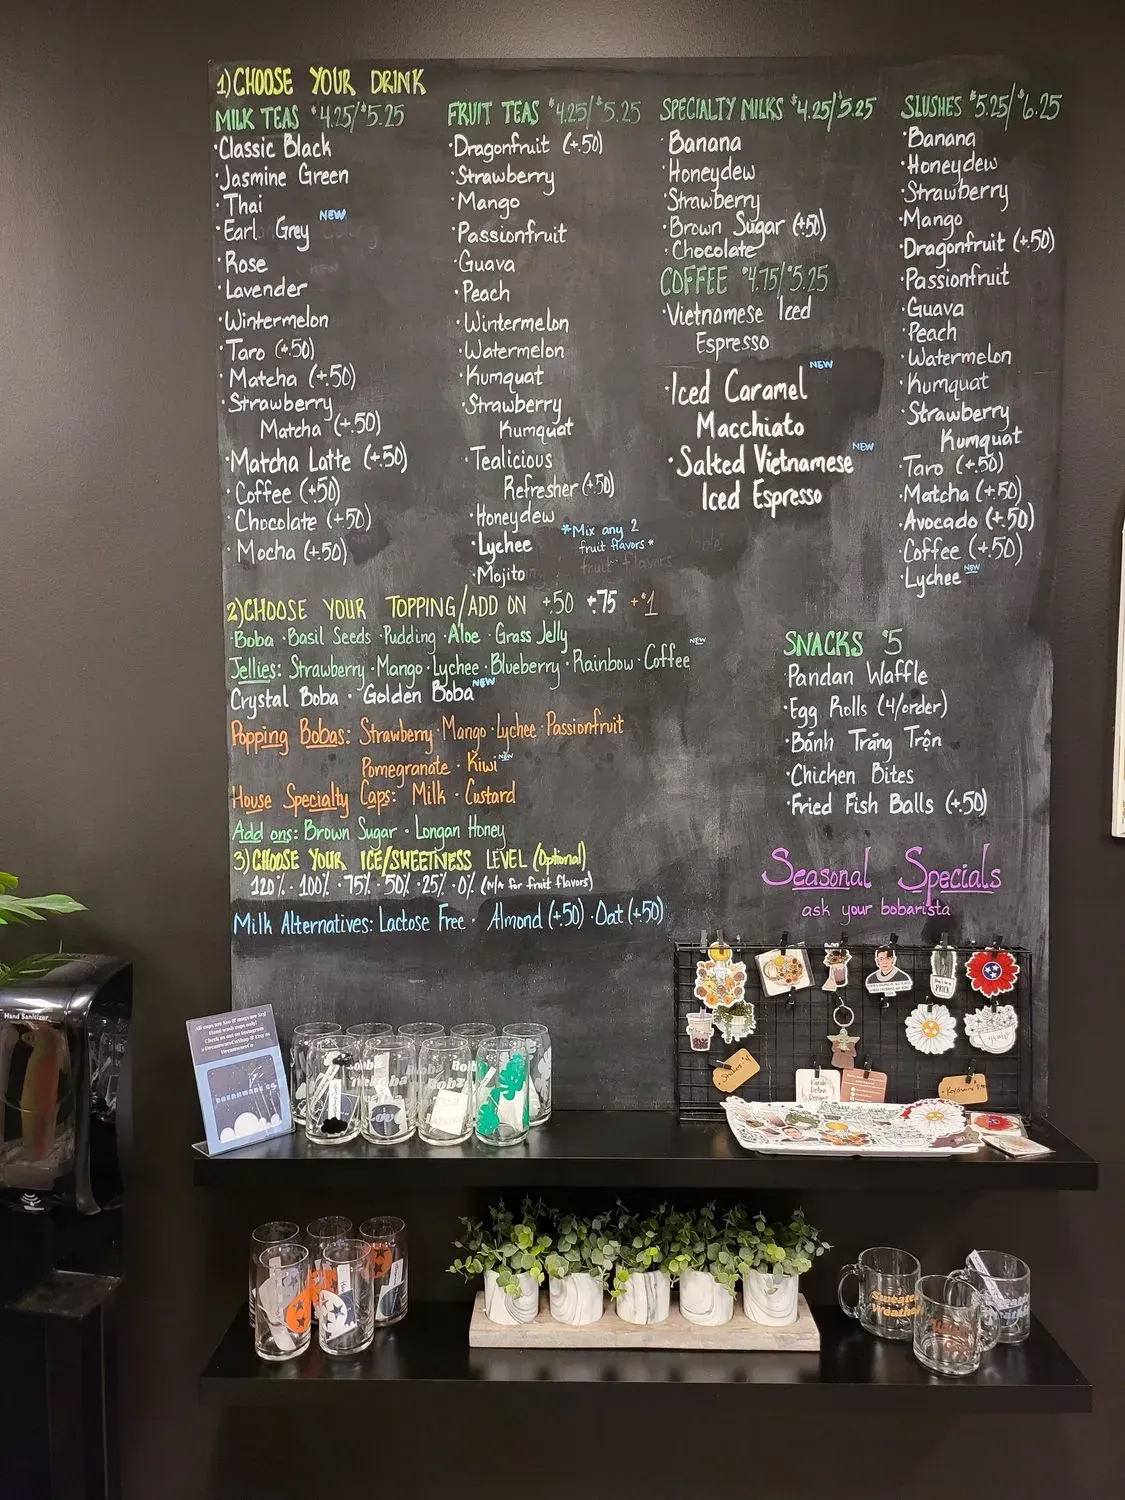 1) CHOOSE YOUR DRINK
MILK TEAS $4.25/$5.25
·Classic Black
·Jasmine Green
·Thai
·Earl Grey NEW
·Rose
·Lavender
·Wintermelon
·Taro (+.50)
·Matcha (+.50)
·Strawberry
Matcha (+.50)
·Matcha Latte (+.50)
·Coffee (+.50)
·Chocolate (+.50)
·Mocha (+.50)
FRUIT TEAS $4.25/$5.25
·Dragonfruit (+.50)
·Strawberry
·Mango
·Passionfruit
·Guava
·Peach
·Wintermelon
·Watermelon
·Kumquat
·Strawberry
Kumquat
·Tealicious
Refresher (+.50)
·Honeydew
·Lychee
·Mojito
*Mix any 2
fruit flavors*
SPECIALTY MILKS $4.25/$5.25
·Banana
·Honeydew
·Strawberry
·Brown Sugar (+.50)
·Chocolate
COFFEE $4.75/$5.25
·Vietnamese Iced
Espresso
·Iced Caramel NEW
Macchiato
·Salted Vietnamese NEW
Iced Espresso
SLUSHES $5.25/$6.25
·Banana
·Honeydew
·Strawberry
·Mango
·Dragonfruit (+.50)
·Passionfruit
·Guava
·Peach
·Watermelon
·Kumquat
·Strawberry
Kumquat
·Taro (+.50)
·Matcha (+.50)
·Avocado (+.50)
·Coffee (+.50)
·Lychee NEW
2) CHOOSE YOUR TOPPING/ADD ON +.50 +.75 +$1
·Boba ·Basil Seeds ·Pudding ·Aloe ·Grass Jelly
Jellies: Strawberry ·Mango ·Lychee ·Blueberry ·Rainbow ·Coffee NEW
Crystal Boba · Golden Boba NEW
Popping Bobas: Strawberry ·Mango ·Lychee ·Passionfruit
Pomegranate · Kiwi NEW
House Specialty Caps: Milk · Custard
Add ons: Brown Sugar · Longan Honey
3) CHOOSE YOUR ICE/SWEETNESS LEVEL (Optional)
120% · 100% · 75% · 50% · 25% · 0% (N/A for fruit flavors)
Milk Alternatives: Lactose Free · Almond (+.50) · Oat (+.50)
SNACKS $5
·Pandan Waffle
·Egg Rolls (4/order)
·Bánh Tráng Trộn
·Chicken Bites
·Fried Fish Balls (+.50)
Seasonal Specials
ask your bobarista
Hand Sanitizer
All cups are $20 if mugs are $15!
Hand wash cups only!
DREAMWARE CO.